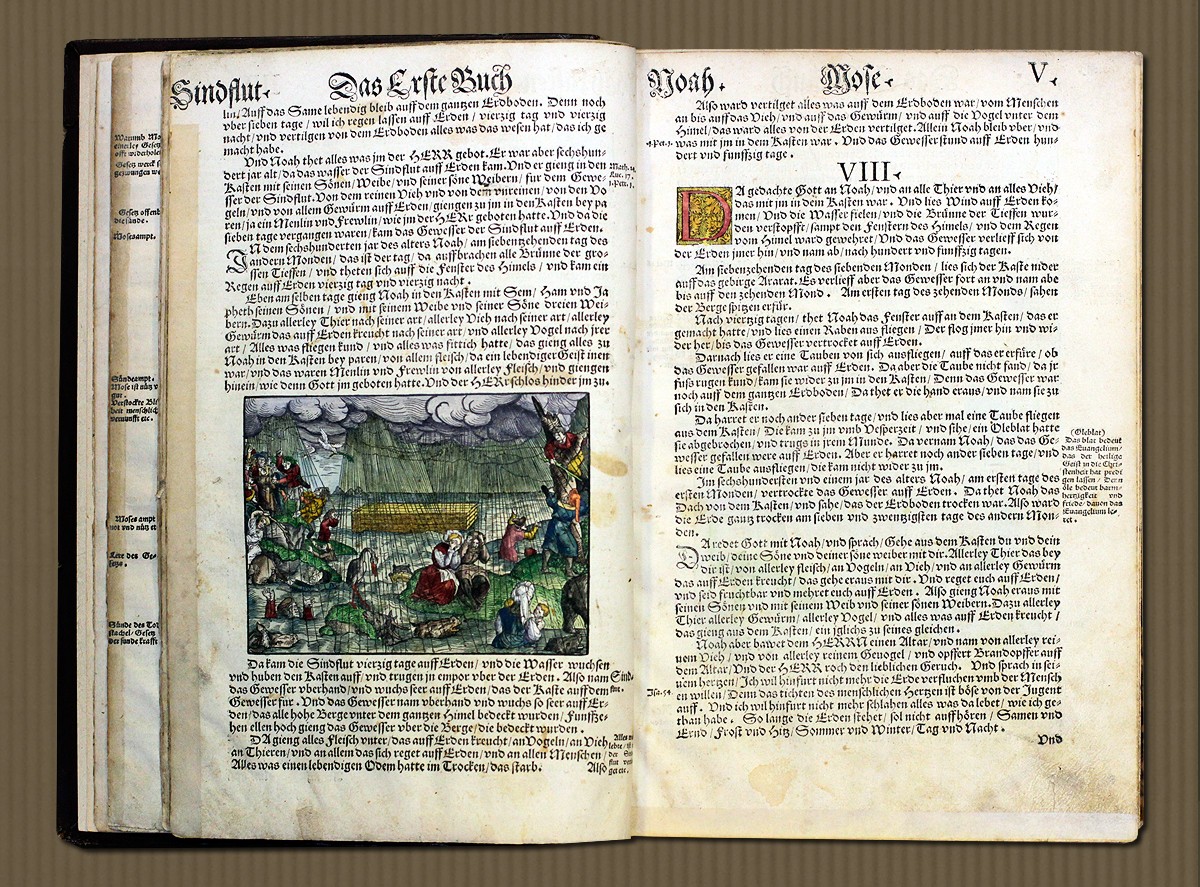 Sindflut. Das Erste Buch
lin/Auff das Same lebendig bleib auff dem gantzen Erdboden. Denn noch
vber sieben tage/wil ich regen lassen auff Erden/vierzig tag vnd vierzig
nacht/vnd vertilgen von dem Erdboden alles was das wesen hat/das ich ge
macht habe.
Vnd Noah thet alles was jm der HERR gebot. Er war aber sechshun-
dert jar alt/da das wasser der Sindflut auff Erden kam. Vnd er gieng in den
Kasten mit seinen Sönen/Weibe/vnd seiner söne Weibern/fur dem Gewe-
sser der Sindflut. Von dem reinen Vieh vnd von dem vnreinen/von den Vo
geln/vnd von allem Gewürm auff Erden/giengen zu jm in den Kasten bey pa
ren/ja ein Menlin vnd Frewlin/wie jm der HERr geboten hatte. Vnd da die
sieben tage vergangen waren/kam das Gewesser der Sindflut auff Erden.
IN dem sechshunderten jar des alters Noah/am siebenzehenden tag des
andern Monden/das ist der tag/da auffbrachen alle Brünne der gro-
ssen Tieffen/vnd theten sich auff die Fenster des Himels/vnd kam ein
Regen auff Erden vierzig tag vnd vierzig nacht.
Eben am selben tage gieng Noah in den Kasten mit Sem/Ham vnd Ja
pheth seinen Sönen/vnd mit seinem Weibe vnd seiner Söne dreien Wei-
bern. Dazu allerley Thier nach seiner art/allerley Vieh nach seiner art/allerley
Gewürm das auff Erden kreucht nach seiner art/vnd allerley Vogel nach jrer
art/Alles was fliegen kund/vnd alles was fittich hatte/das gieng alles zu
Noah in den Kasten bey paren/von allem fleisch/da ein lebendiger Geist inen
war/vnd das waren Menlin vnd Frewlin von allerley Fleisch/vnd giengen
hinein/wie denn Gott jm geboten hatte. Vnd der HERr schlos hinder jm zu.
Da kam die Sindflut vierzig tage auff Erden/vnd die Wasser wuchsen
vnd huben den Kasten auff/vnd trugen jn empor vber der Erden. Also nam
das Gewesser vberhand/vnd wuchs seer auff Erden/das der Kaste auff dem
Gewesser fur. Vnd das Gewesser nam vberhand vnd wuchs so seer auff Er-
den/das alle hohe Berge vnter dem gantzen Himel bedeckt wurden/Funffze-
hen ellen hoch gieng das Gewesser vber die Berge/die bedeckt wurden.
DA gieng alles Fleisch vnter/das auff Erden kreucht/an Vogeln/an Vieh
an Thieren/vnd an allem das sich reget auff Erden/vnd an allen Menschen/
Alles was einen lebendigen Odem hatte im Trocken/das starb. Also
Math. 24.
Luc. 17.
1. Petr. 3.
Sind-
flut.
Gesetz offenb
die sünde.
Moses ampt.
Sündeampt.
Mose ist nütz v
gut.
Verstockte Bli
heit menschlich
vernunfft etc.
Moses ampt
not vnd nütz
Lere des Ge-
setzs.
Sünde des Tod
stachel/Gesetz
der sunde krafft
Noah. Mose. V.
Also ward vertilget alles was auff dem Erdboden war/vom Menschen
an bis auff das Vieh/vnd auff das Gewürm/vnd auff die Vogel vnter dem
Himel/das ward alles von der Erden vertilget. Allein Noah bleib vber/vnd
was mit jm in dem Kasten war. Vnd das Gewesser stund auff Erden hun-
dert vnd funffzig tage.
VIII.
DA gedachte Gott an Noah/vnd an alle Thier vnd an alles Vieh/
das mit jm in dem Kasten war. Vnd lies Wind auff Erden ko-
men/Vnd die Wasser fielen/vnd die Brünne der Tieffen wur-
den verstopfft/sampt den Fenstern des Himels/vnd dem Regen
vom Himel ward gewehret/Vnd das Gewesser verlieff sich von
der Erden jmer hin/vnd nam ab/nach hundert vnd funffzig tagen.
Am siebenzehenden tag des siebenden Monden/lies sich der Kaste nider
auff das gebirge Ararat. Es verlieff aber das Gewesser fort an vnd nam abe
bis auff den zehenden Mond. Am ersten tag des zehenden Monds/sahen
der Berge spitzen erfür.
Nach vierzig tagen/thet Noah das Fenster auff an dem Kasten/das er
gemacht hatte/vnd lies einen Raben aus fliegen/Der flog jmer hin vnd wi-
der her/bis das Gewesser vertrocket auff Erden.
Darnach lies er eine Tauben von sich ausfliegen/auff das er erfüre/ob
das Gewesser gefallen war auff Erden. Da aber die Taube nicht fand/da jr
fuss rugen kund/kam sie wider zu jm in den Kasten/Denn das Gewesser war
noch auff dem gantzen Erdboden/Da thet er die hand eraus/vnd nam sie zu
sich in den Kasten.
Da harret er noch ander sieben tage/vnd lies aber mal eine Taube fliegen
aus dem Kasten/Die kam zu jm vmb Vesperzeit/vnd sihe/ein Oleblat hatte
sie abgebrochen/vnd trugs in jrem Munde. Da vernam Noah/das das Ge-
wesser gefallen were auff Erden. Aber er harret noch ander sieben tage/vnd
lies eine Taube ausfliegen/die kam nicht wider zu jm.
Im sechshundersten vnd einem jar des alters Noah/am ersten tage des
ersten Monden/vertrockte das Gewesser auff Erden. Da thet Noah das
Dach von dem Kasten/vnd sahe/das der Erdboden trocken war. Also ward
die Erde gantz trocken am sieben vnd zwentzigsten tage des andern Mon-
den.
DA redet Gott mit Noah/vnd sprach/Gehe aus dem Kasten du vnd dein
weib/deine Söne vnd deiner söne weiber mit dir. Allerley Thier das bey
dir ist/von allerley fleisch/an Vogeln/an Vieh/vnd an allerley Gewürm
das auff Erden kreucht/das gehe eraus mit dir. Vnd reget euch auff Erden/
vnd seid fruchtbar vnd mehret euch auff Erden. Also gieng Noah eraus mit
seinen Sönen vnd mit seinem Weib vnd seiner sönen Weibern. Dazu allerley
Thier allerley Gewürm/allerley Vogel/vnd alles was auff Erden kreucht/
das gieng aus dem Kasten/ein jglichs zu seines gleichen.
Noah aber bawet dem HERRN einen Altar/vnd nam von allerley rei-
nem Vieh/vnd von allerley reinem Geuogel/vnd opffert Brandopffer auff
dem Altar/Vnd der HERR roch den lieblichen Geruch. Vnd sprach in sei-
nem hertzen/Ich wil hinfurt nicht mehr die Erde verfluchen vmb der Mensch
en willen/Denn das tichten des menschlichen Hertzen ist böse von der Jugent
auff. Vnd ich wil hinfurt nicht mehr schlahen alles was da lebet/wie ich ge-
than habe. So lange die Erden stehet/sol nicht auffhören/Samen vnd
Ernd/Frost vnd Hitz/Sommer vnd Winter/Tag vnd Nacht.
Vnd
(Oleblat)
Das blat bedeut
das Euangelium/
das der heilige
Geist in die Chri-
stenheit hat predi
gen lassen/Denn
öle bedeut barm-
hertzigkeit vnd
friede/dauon das
Euangelium le-
ret.
Jsa. 54.